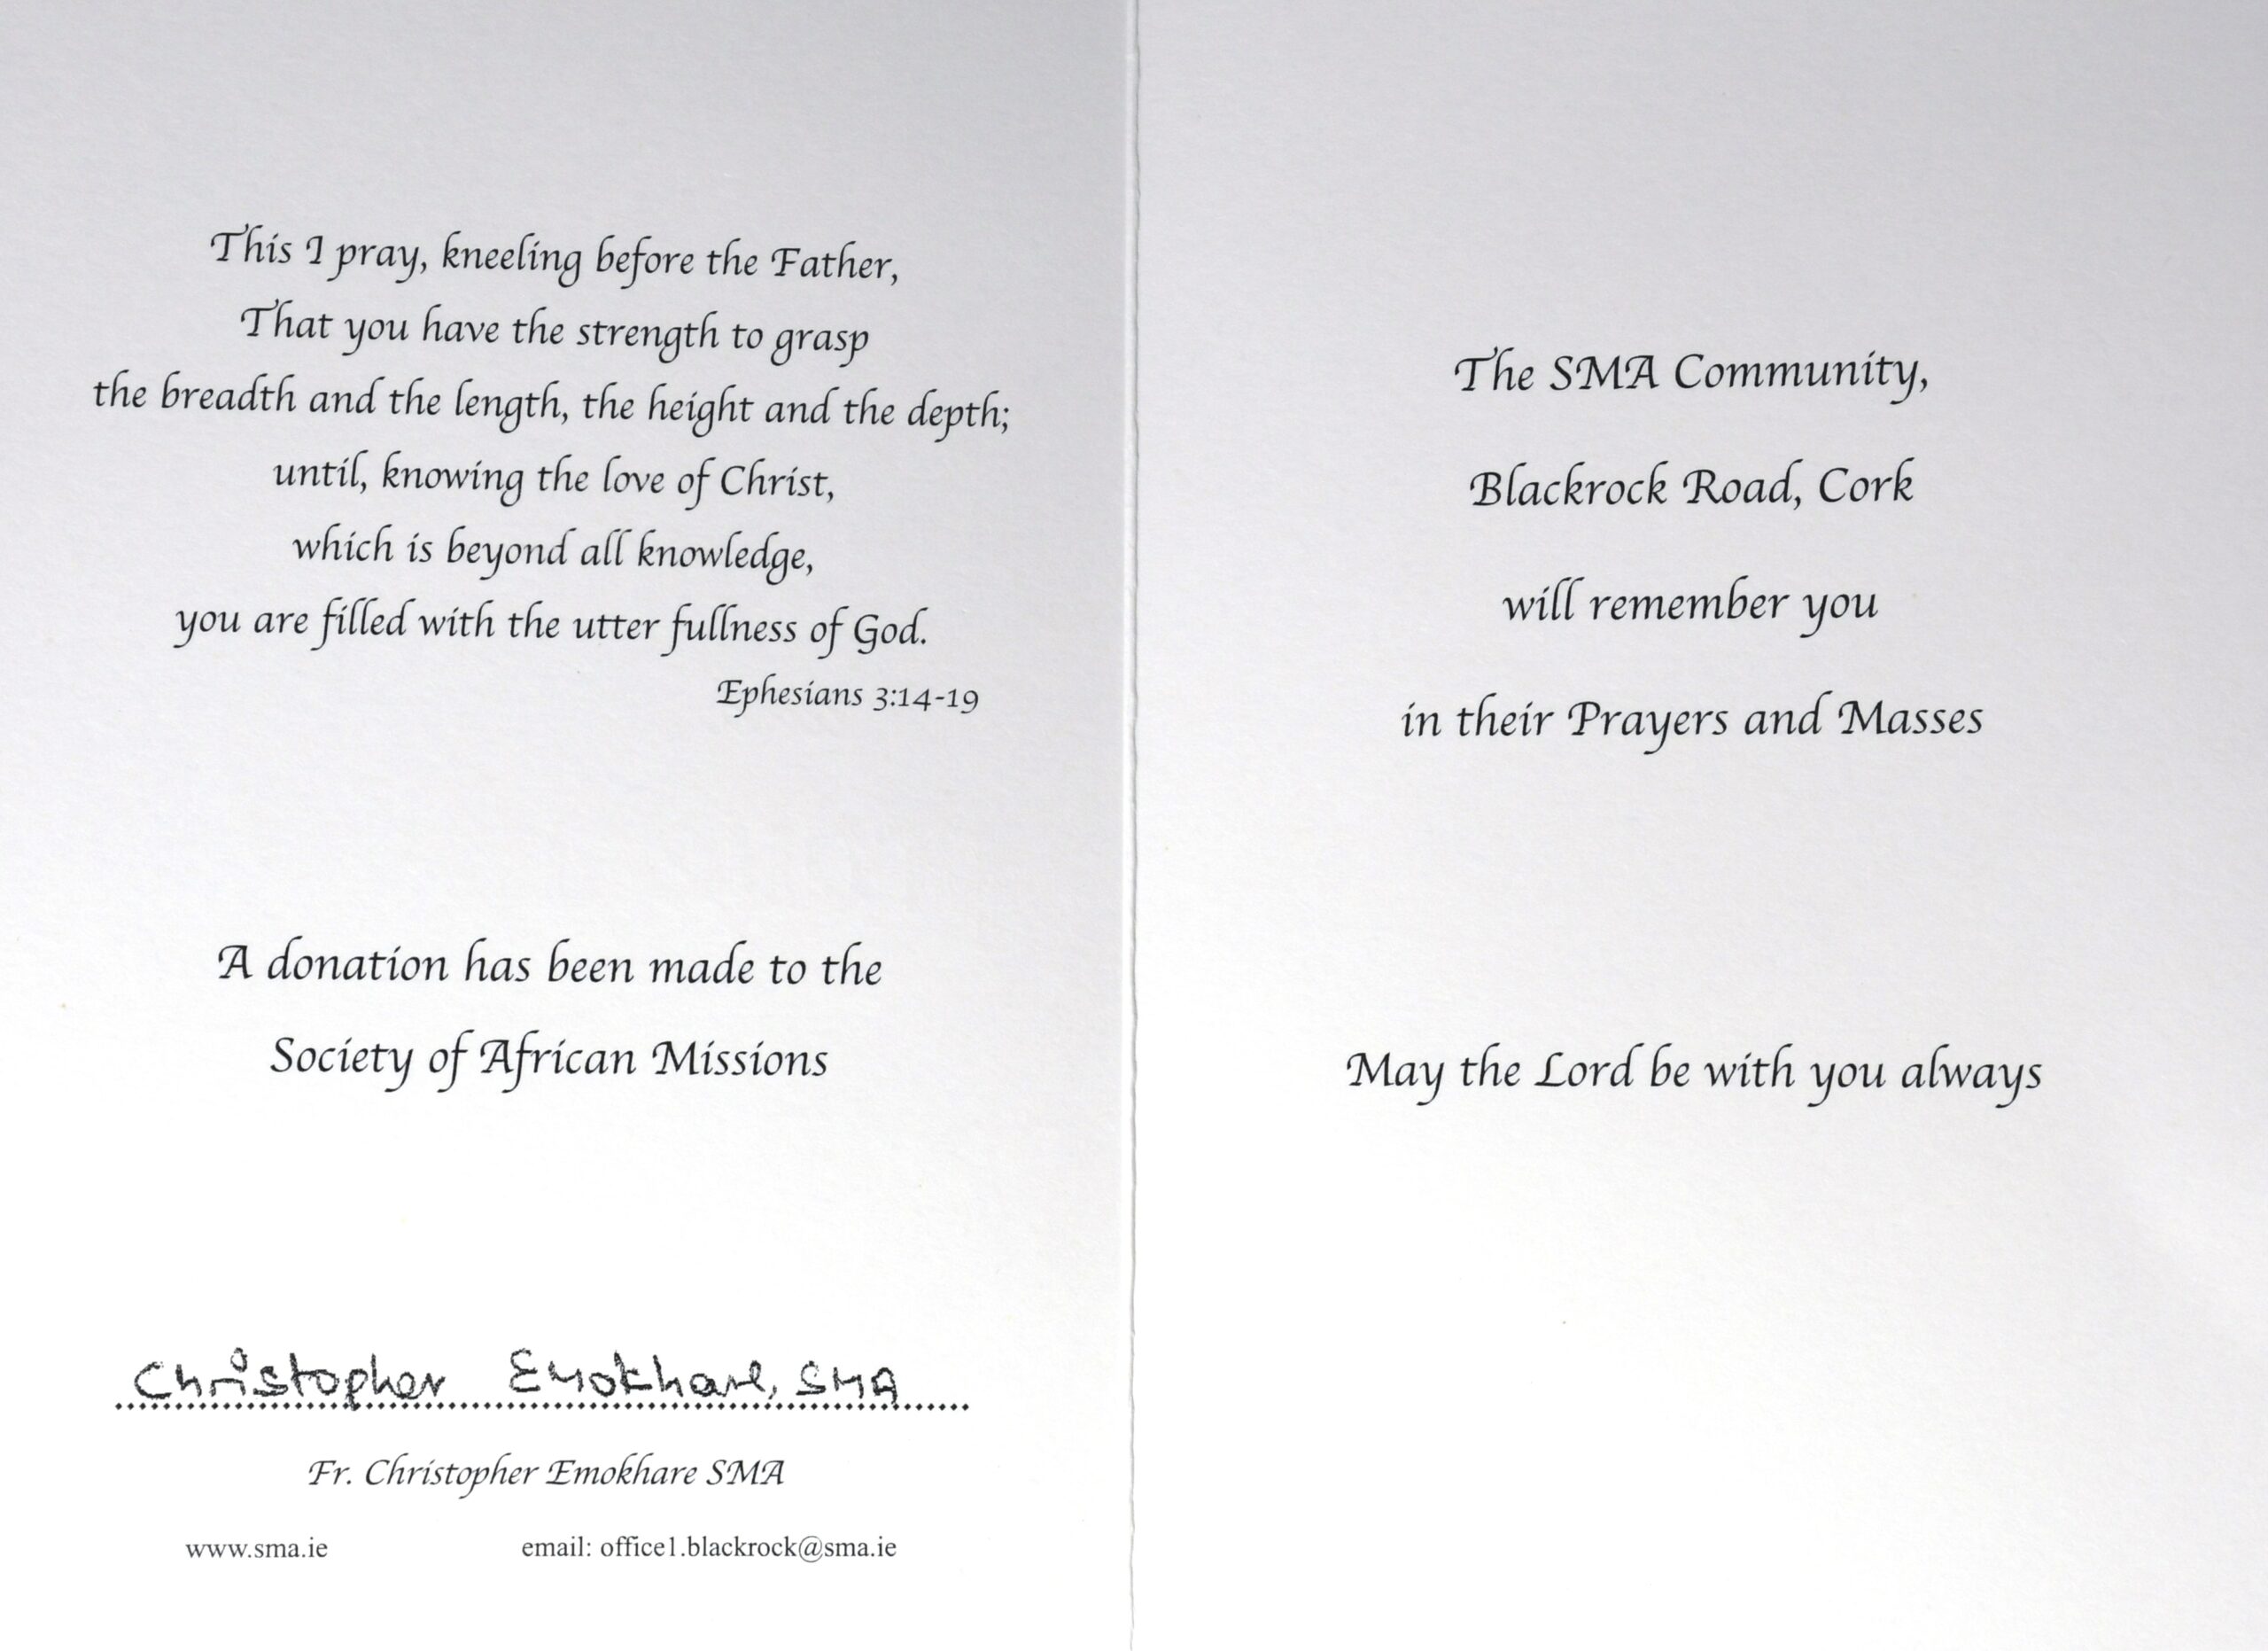 This I pray, kneeling before the Father,
That you have the strength to grasp
the breadth and the length, the height and the depth;
until, knowing the love of Christ,
which is beyond all knowledge,
you are filled with the utter fullness of God.
Ephesians 3:14-19
A donation has been made to the
Society of African Missions
Christopher Emokhare, SMA
Fr. Christopher Emokhare SMA
www.sma.ie email: office1.blackrock@sma.ie
The SMA Community,
Blackrock Road, Cork
will remember you
in their Prayers and Masses
May the Lord be with you always